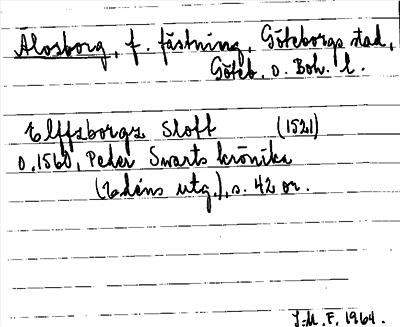 Älvsborg, f. fästning, Göteborgs stad,
Göteb. o. Boh. l.
Elffzborgz Slott (1521)
o. 1560, Peder Swarts krönika
(Edéns utg.), s. 42 or.
J.M.F. 1964.